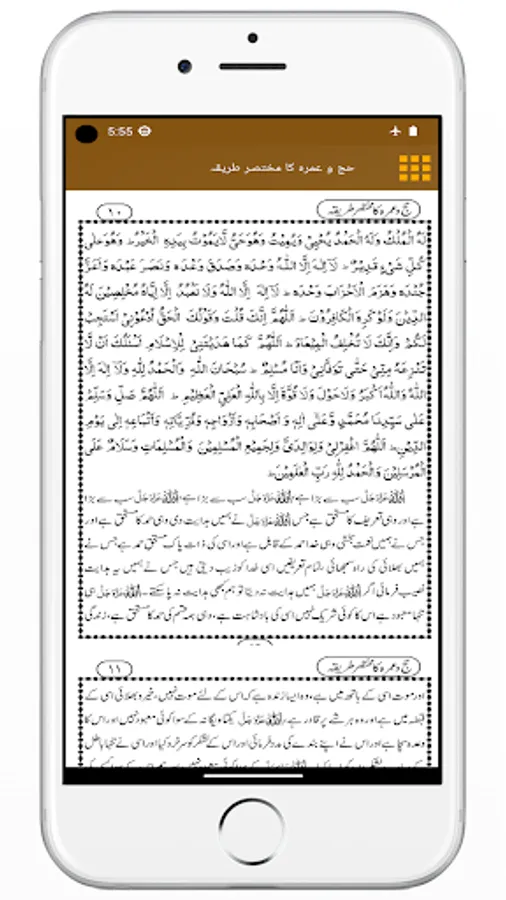 5:55
حج و عمرہ کا مختصر طریقہ
حج و عمرہ کا مختصر طریقہ ۱۰
لَهُ الْمُلْكُ وَلَهُ الْحَمْدُ يُحْيِيْ وَيُمِيْتُ وَهُوَ حَيٌّ لَّا يَمُوْتُ بِيَدِهِ الْخَيْرُ ط وَهُوَ عَلٰى
كُلِّ شَيْءٍ قَدِيْرٌ ط لَا اِلٰهَ اِلَّا اللّٰهُ وَحْدَهٗ وَصَدَقَ وَعْدَهٗ وَنَصَرَ عَبْدَهٗ وَاَعَزَّ
جُنْدَهٗ وَهَزَمَ الْاَحْزَابَ وَحْدَهٗ ط لَا اِلٰهَ اِلَّا اللّٰهُ وَلَا نَعْبُدُ اِلَّا اِيَّاهُ مُخْلِصِيْنَ لَهُ
الدِّيْنَ وَلَوْ كَرِهَ الْكَافِرُوْنَ ط اَللّٰهُمَّ اِنَّكَ قُلْتَ وَقَوْلُكَ الْحَقُّ اُدْعُوْنِيْ اَسْتَجِبْ
لَكُمْ وَاِنَّكَ لَا تُخْلِفُ الْمِيْعَادَ ط اَللّٰهُمَّ كَمَا هَدَيْتَنِيْ لِلْاِسْلَامِ اَسْئَلُكَ اَنْ لَّا
تَنْزِعَهٗ مِنِّيْ حَتّٰى تَوَفَّانِيْ وَاَنَا مُسْلِمٌ ط سُبْحَانَ اللّٰهِ وَالْحَمْدُ لِلّٰهِ وَلَا اِلٰهَ اِلَّا
اللّٰهُ وَاللّٰهُ اَكْبَرُ وَلَا حَوْلَ وَلَا قُوَّةَ اِلَّا بِاللّٰهِ الْعَلِيِّ الْعَظِيْمِ ط اَللّٰهُمَّ صَلِّ وَسَلِّمْ
عَلٰى سَيِّدِنَا مُحَمَّدٍ وَّعَلٰى اٰلِهٖ وَاَصْحَابِهٖ وَاَزْوَاجِهٖ وَذُرِّيَّاتِهٖ وَاَتْبَاعِهٖ اِلٰى يَوْمِ
الدِّيْنِ ط اَللّٰهُمَّ اغْفِرْلِيْ وَلِوَالِدَيَّ وَلِجَمِيْعِ الْمُسْلِمِيْنَ وَالْمُسْلِمَاتِ وَسَلَامٌ عَلَى
الْمُرْسَلِيْنَ وَالْحَمْدُ لِلّٰهِ رَبِّ الْعٰلَمِيْنَ ط
اللہ سب سے بڑا ہے، اللہ سب سے بڑا ہے، اللہ سب سے بڑا
ہے اور وہی تعریف کا مستحق ہے جس اللہ نے ہمیں ہدایت دی وہی حمد کا مستحق ہے اور
جس نے ہمیں نعمت بخشی وہی خدا حمد کے قابل ہے اور اسی کی ذات پاک مستحق حمد ہے جس نے
ہمیں بھلائی کی راہ سمجھائی، تمام تعریفیں اسی خدا کو زیب دیتی ہیں جس نے ہمیں یہ ہدایت
نصیب فرمائی اگر اللہ ہمیں ہدایت نہ دیتا تو ہم کبھی ہدایت نہ پا سکتے۔ اللہ ہی
تنہا معبود ہے اس کا کوئی شریک نہیں اسی کی بادشاہت ہے، وہی ہمہ قسم کی حمد کا مستحق ہے، زندگی
حج و عمرہ کا مختصر طریقہ ۱۱
اور موت اسی کے ہاتھ میں ہے، وہ ایسا زندہ ہے کہ اس کے لئے موت نہیں، خیر و بھلائی اسی کے
قبضہ میں ہے اور وہ ہر شے پر قادر ہے، اللہ یکتا و یگانہ کے سوا کوئی معبود نہیں اور اس کا
وعدہ سچا ہے اور اس نے اپنے بندے کی مدد فرمائی اور اس کے لشکر کو سرفراز کیا اور اسی نے تنہا باطل